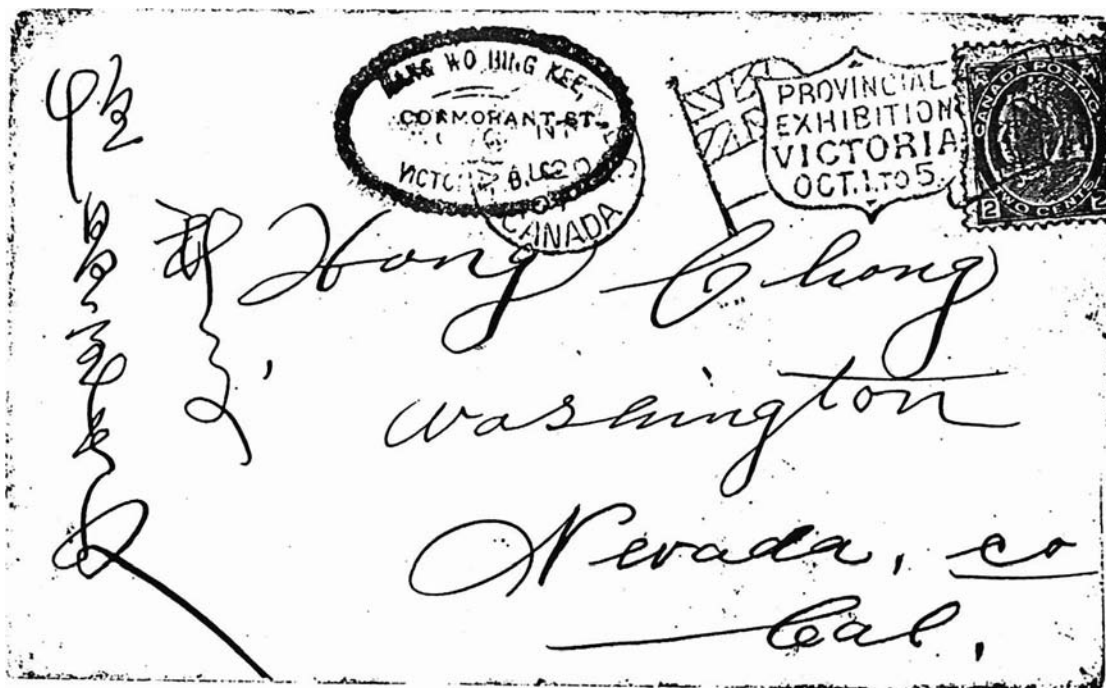 WO HING KEE,
CORMORANT ST.
VICTORIA B.C.
CANADA
PROVINCIAL
EXHIBITION
VICTORIA
OCT. 1 TO 5
CANADA POSTAGE
2 TWO CENTS 2
恒昌
Hong Chong
Washington
Nevada, co
Cal.